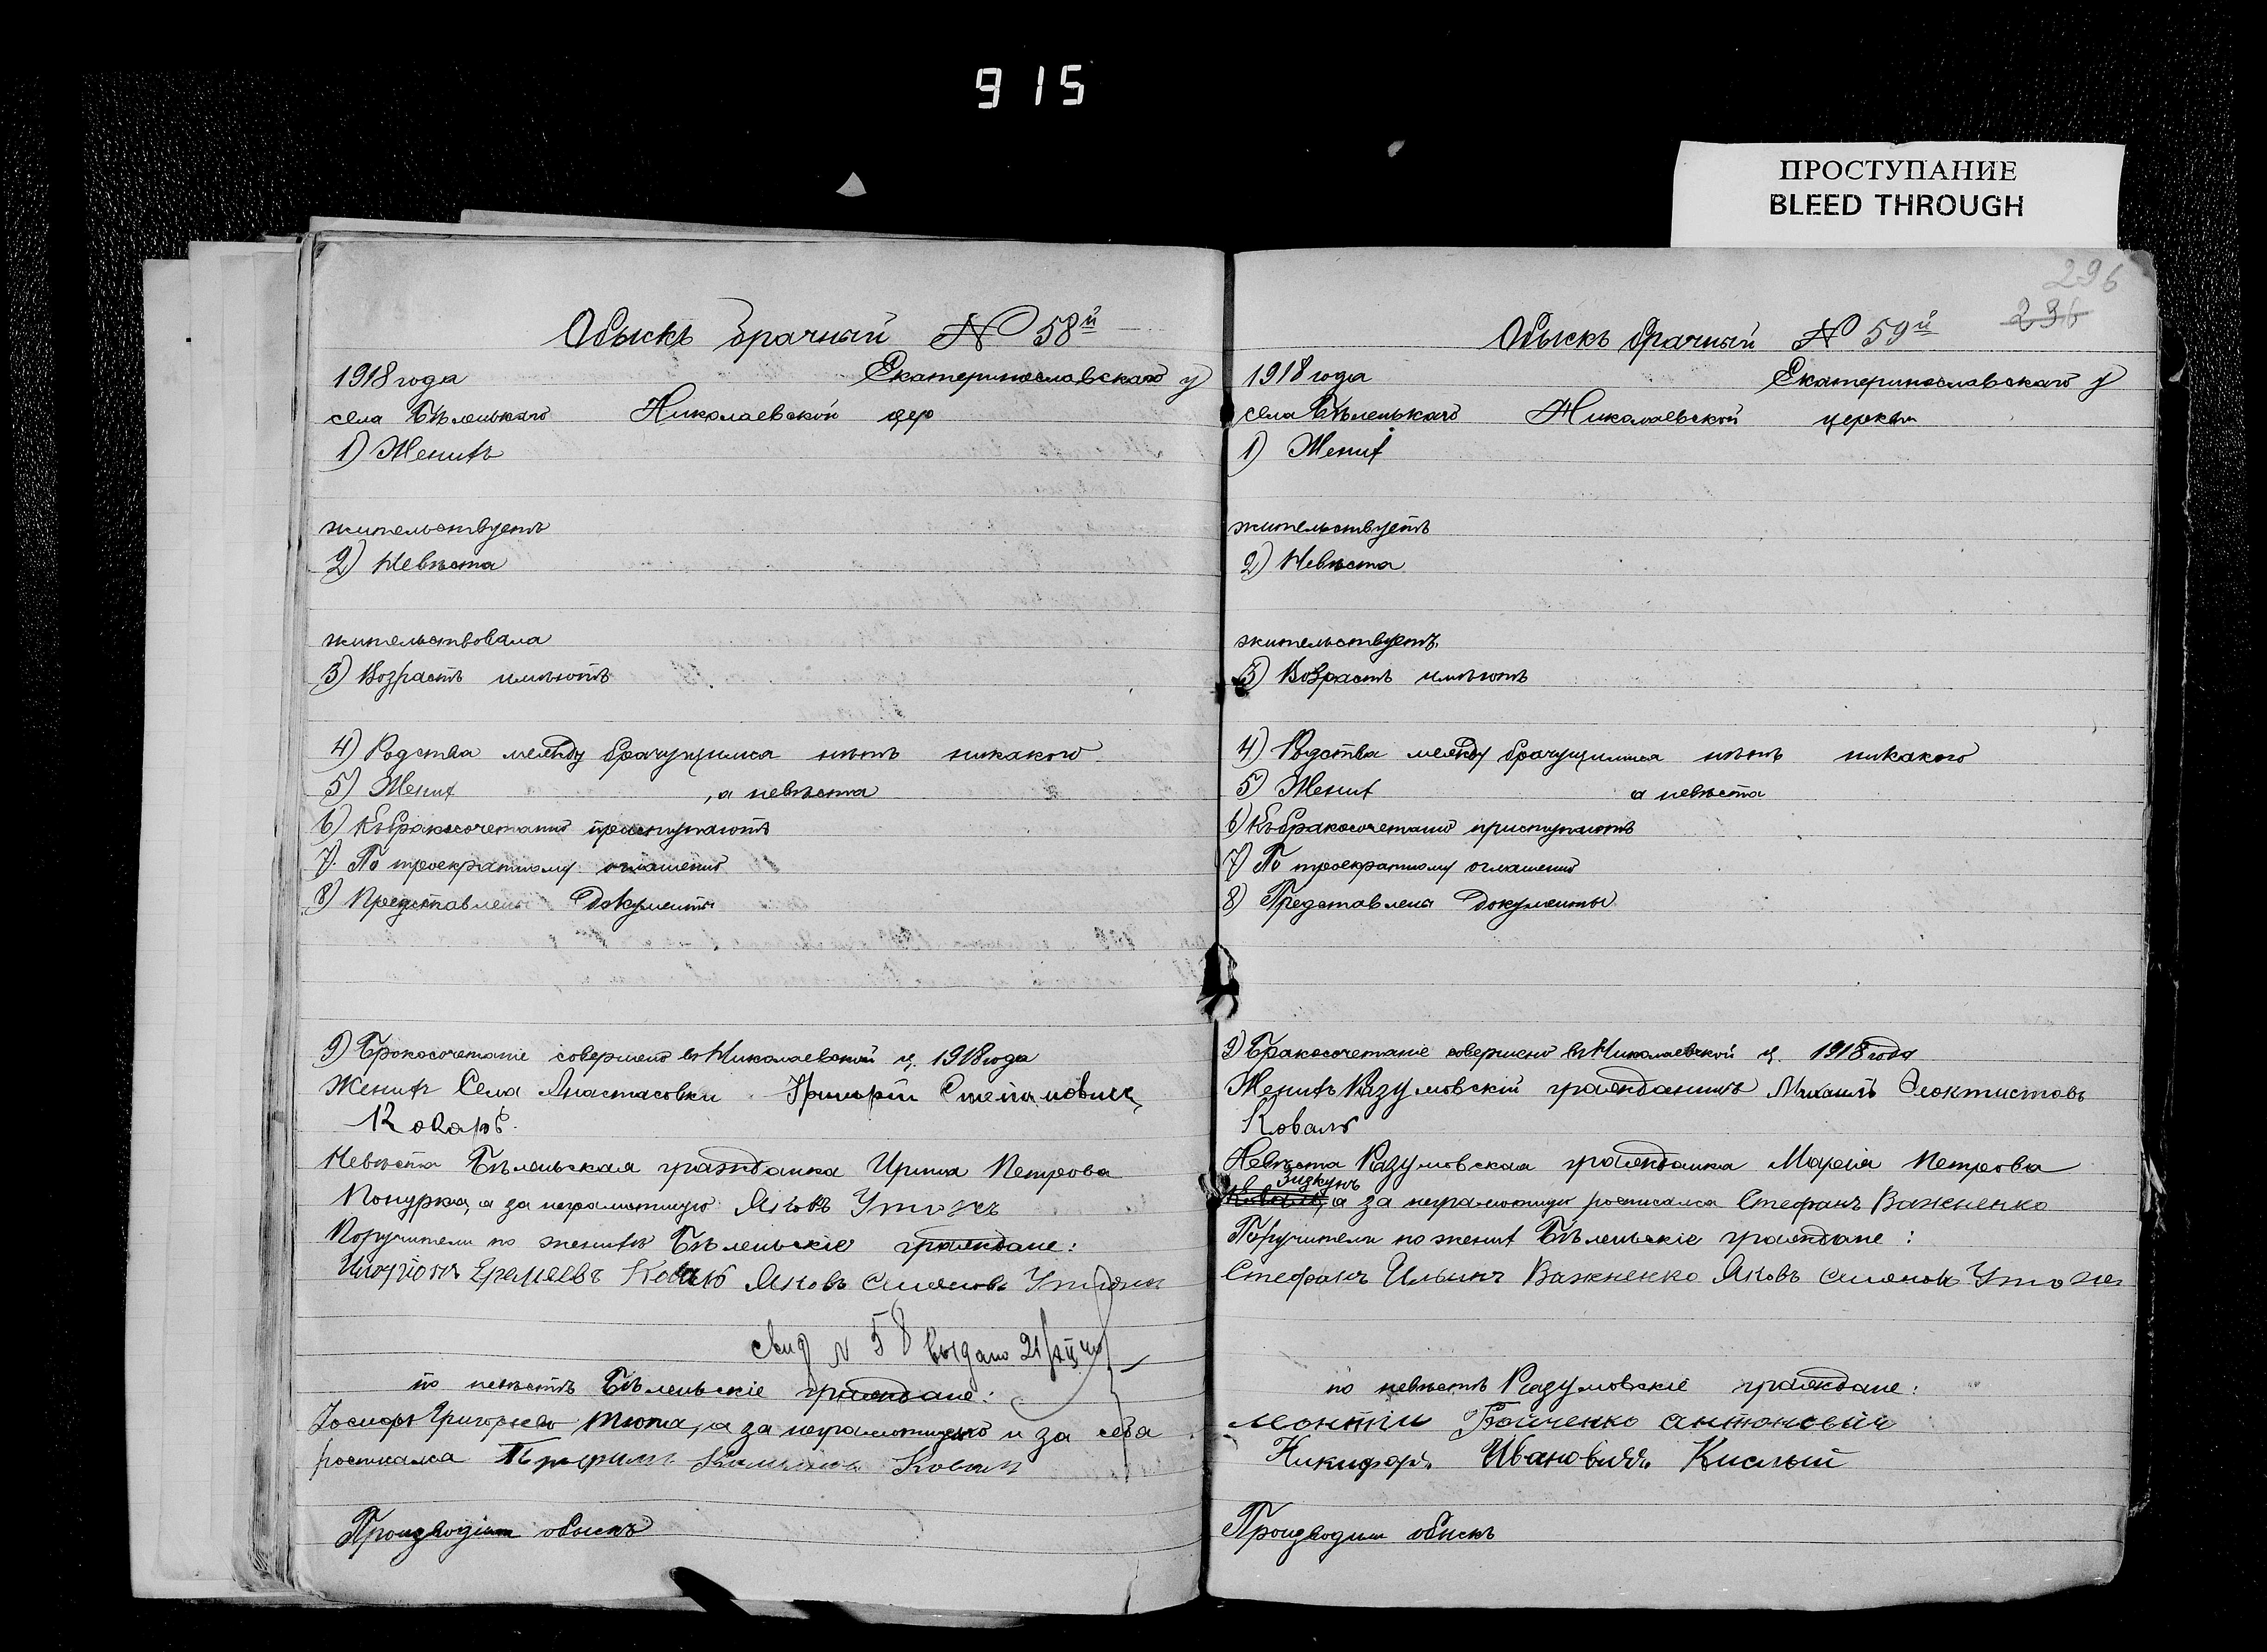 915
ПРОСТУПАНИЕ
BLEED THROUGH
Обыскъ брачный № 58й
1918 года Екатеринославскаго у
села Бѣленькаго Николаевской цер
1) Женихъ
жительствуетъ
2) Невѣста
жительствовала
3) Возрастъ имѣютъ
4) Родства между брачущимися нѣтъ никакого
5) Жених , а невѣста
6) Къ бракосочетанію приступаютъ
7) По троекратному оглашенію
8) Представлены документы
9) Бракосочетаніе совершено въ Николаевской ц. 1918 года
Женихъ Села Анастасовки Григорій Степановичъ
Коваръ.
Невѣста Бѣленьская гражданка Ирина Петрова
Понурка, а за неграмотную Яковъ Утюжъ
Поручители по женихѣ Бѣленьскіе граждане:
Еремеевъ Коваль Яковъ Семеновъ Утюжъ
свид N 58 выдано 21/XII
по невѣстѣ Бѣленьскіе граждане:
Іосифъ Григорьевъ Тюта, а за неграмотнаго и за себя
росписался Коваль
Производили обыскъ
296
236
Обыскъ брачный № 59й
1918 года Екатеринославскаго у
села Бѣленькаго Николаевской церкви
1) Жених
жительствуетъ
2) Невѣста
жительствуетъ
3) Возрастъ имѣютъ
4) Родства между брачущимися нѣтъ никакого
5) Жених а невѣста
6) Къ бракосочетанію приступаютъ
7) По троекратному оглашенію
8) Представлены документы
9) Бракосочетаніе совершено въ Николаевской ц. 1918 года
Женихъ Разумовскій гражданинъ Михаилъ Феоктистовъ
Коваль
Невѣста Разумовская гражданка Марѳія Петрова
Зизкунъ
Коваль, а за неграмотную росписался Стефанъ Важненко
Поручители по жених Бѣленьскіе граждане:
Стефанъ Ильинъ Важненко Яковъ Семеновъ Утюжъ
по невѣстѣ Разумовскіе граждане:
Леонтій Бойченко антоновіч
Никифоръ Ивановичъ Кислый
Производили обыскъ